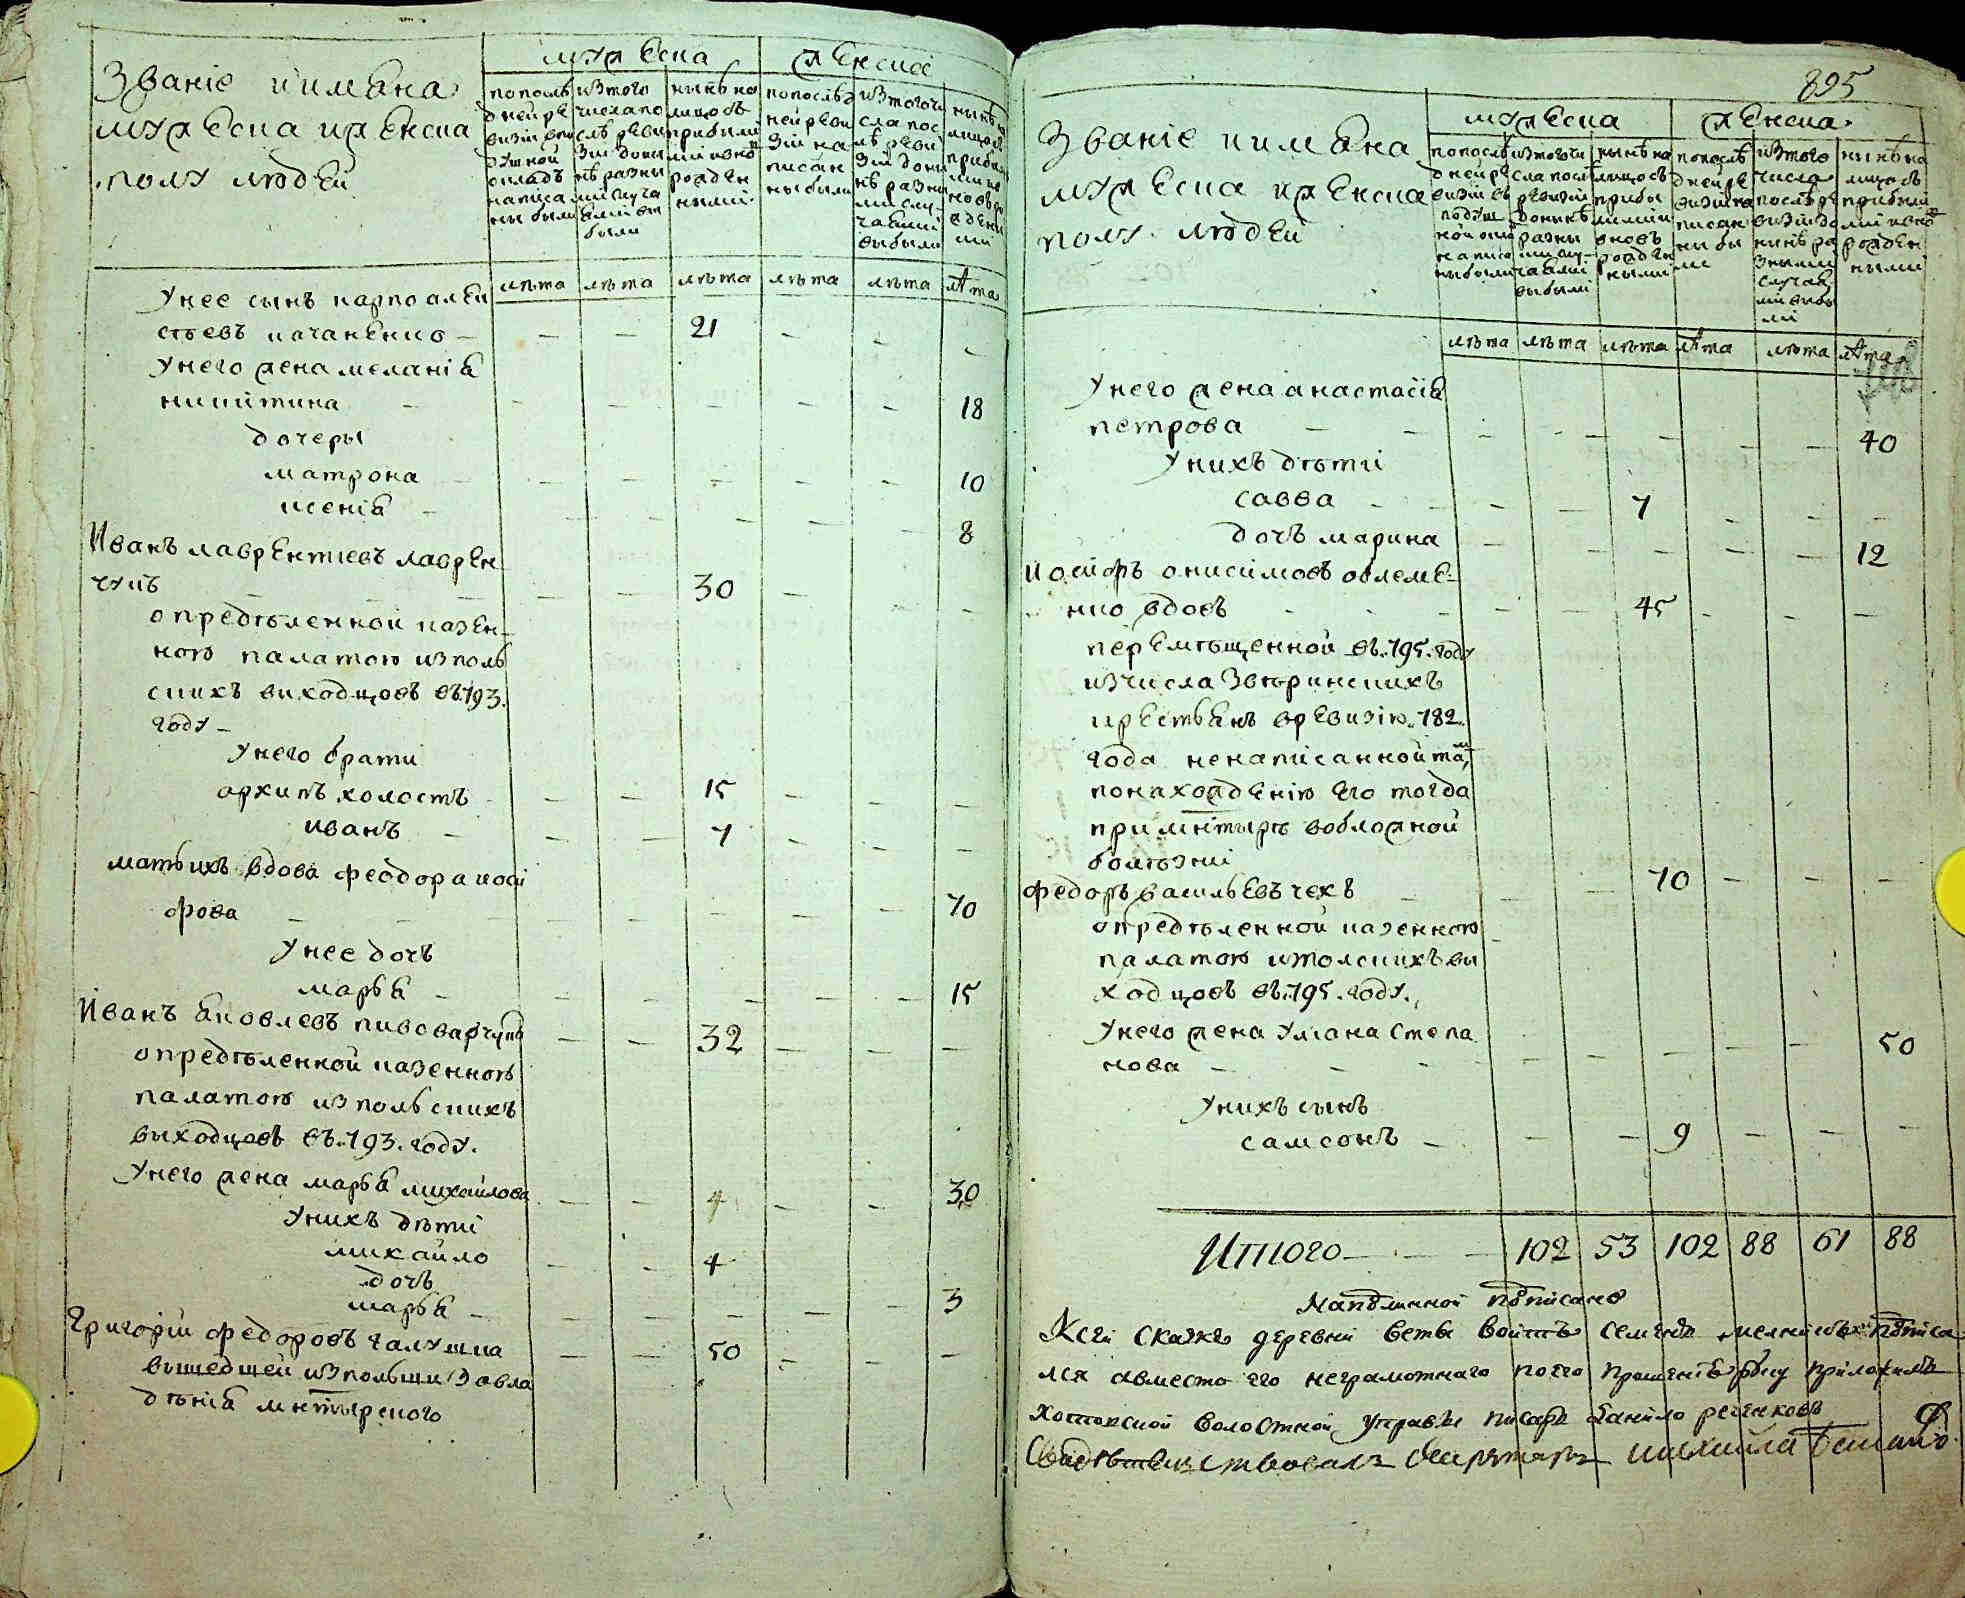 Званіе иимена
мужеска иженска
полу людей
мужеска
женска
попослѣ
дней ре
визіи впо
душной
окладъ
написа
ны были
изтого
числа по
слѣ реви
зіи доны
нѣ разны
ми случа
ями вы
были
нынѣ на
лицо съ
прибылы
ми ивно
рожден
ными
попослѣд
ней реви
зіи на
писан
ны были
изтогочи
сла пос
лѣ реви
зіи доны
нѣ разны
ми слу
чаями
выбыли
нынѣ на
лицо съ
прибылы
ми и в
новь ро
жденны
ми
лѣта лѣта лѣта лѣта лѣта лѣта
Унее сынъ карпо алек
сѣевъ качаненко — — — 21 — — —
Унего жена меланія
никитина — — — — — — 18
дочеры
матрона — — — — — — 10
ксенія — — — — — — 8
Иванъ лаврентиевъ лаврен
чукъ — — — 30 — — —
определенной казен
ною палатою изполь
скихъ виходцовъ въ 793.
году —
Унего брати
архипъ холостъ — — 15 — — —
иванъ — — — 7 — — —
мать ихъ вдова феодора иоси
фова — — — — — — 70
Унее дочъ
марья — — — — — — 15
Иванъ яковлевъ пивоварчукъ — — 32 — — —
определенной казенною
палатою изпольскихъ
выходцовъ въ 793. году.
Унего жена марья михайлова — — 4 — — 30
Унихъ дѣти
михайло — — 4
дочъ
марья — — — — — — 3
Григорій федоровъ галушка — — 50 — — —
вышедшей изпольши Завла
дѣнія мнтырского
895
Званіе иимена
мужеска иженска
полу людей
мужеска
женска
попослѣ
дней ре
визіи въ
подуш
ной окла
написа
ны были
изтогочи
сла посл
ревизіи
донынѣ
разны
ми слу
чаями
выбыли
нынѣ на
лицо съ
прибы
лыми и
вновь
рожден
ными
попослѣ
дней ре
визіи на
писан
ны бы
ли
изтого
числа
послѣ ре
визіи до
нынѣ ра
зными
случая
ми выбы
ли
нынѣ на
лицо съ
прибылы
ми ивно
рожден
ными
лѣта лѣта лѣта лѣта лѣта лѣта
Унего жена анастасія
петрова — — — — — — — 40
Унихъ дѣти
савва — — — 7 — — —
дочъ марина — — — — — 12
иосифъ онисимовъ
нко вдовъ — — — 45 — — —
перемѣщенной въ 795. году
изчисла Звѣринскихъ
крестьянъ вревизію 782.
года ненаписанной тамъ
понахожденію его тогда
примнтырѣ вобложной
болѣзни
федоръ васильевъ чехъ — — 70 — — —
определенной казенною
палатою
ходцовъ въ 795. году.
Унего жена Улиана Степа
нова — — — — — — — 50
Унихъ сынъ
самсонъ — — — 9 — — —
Итого — — — 102 53 102 88 61 88
Наподлинной подписано
Ксей скаске деревни ветьи войтъ семенъ подписа
лся авместо его неграмотнаго поего прошенію руку приложилъ
волостной управы писарь данило
Свидѣтельствовалъ Секретарь михайла